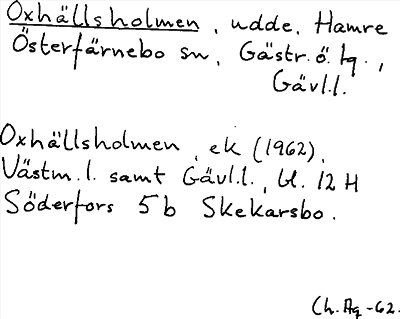 Oxhällsholmen, udde, Hamre
Österfärnebo sn, Gästr. ö. tg.,
Gävl.l.
Oxhällsholmen, ek (1962),
Västm.l. samt Gävl.l., bl. 12 H
Söderfors 5 b Skekarsbo.
Ch. Ag -62.